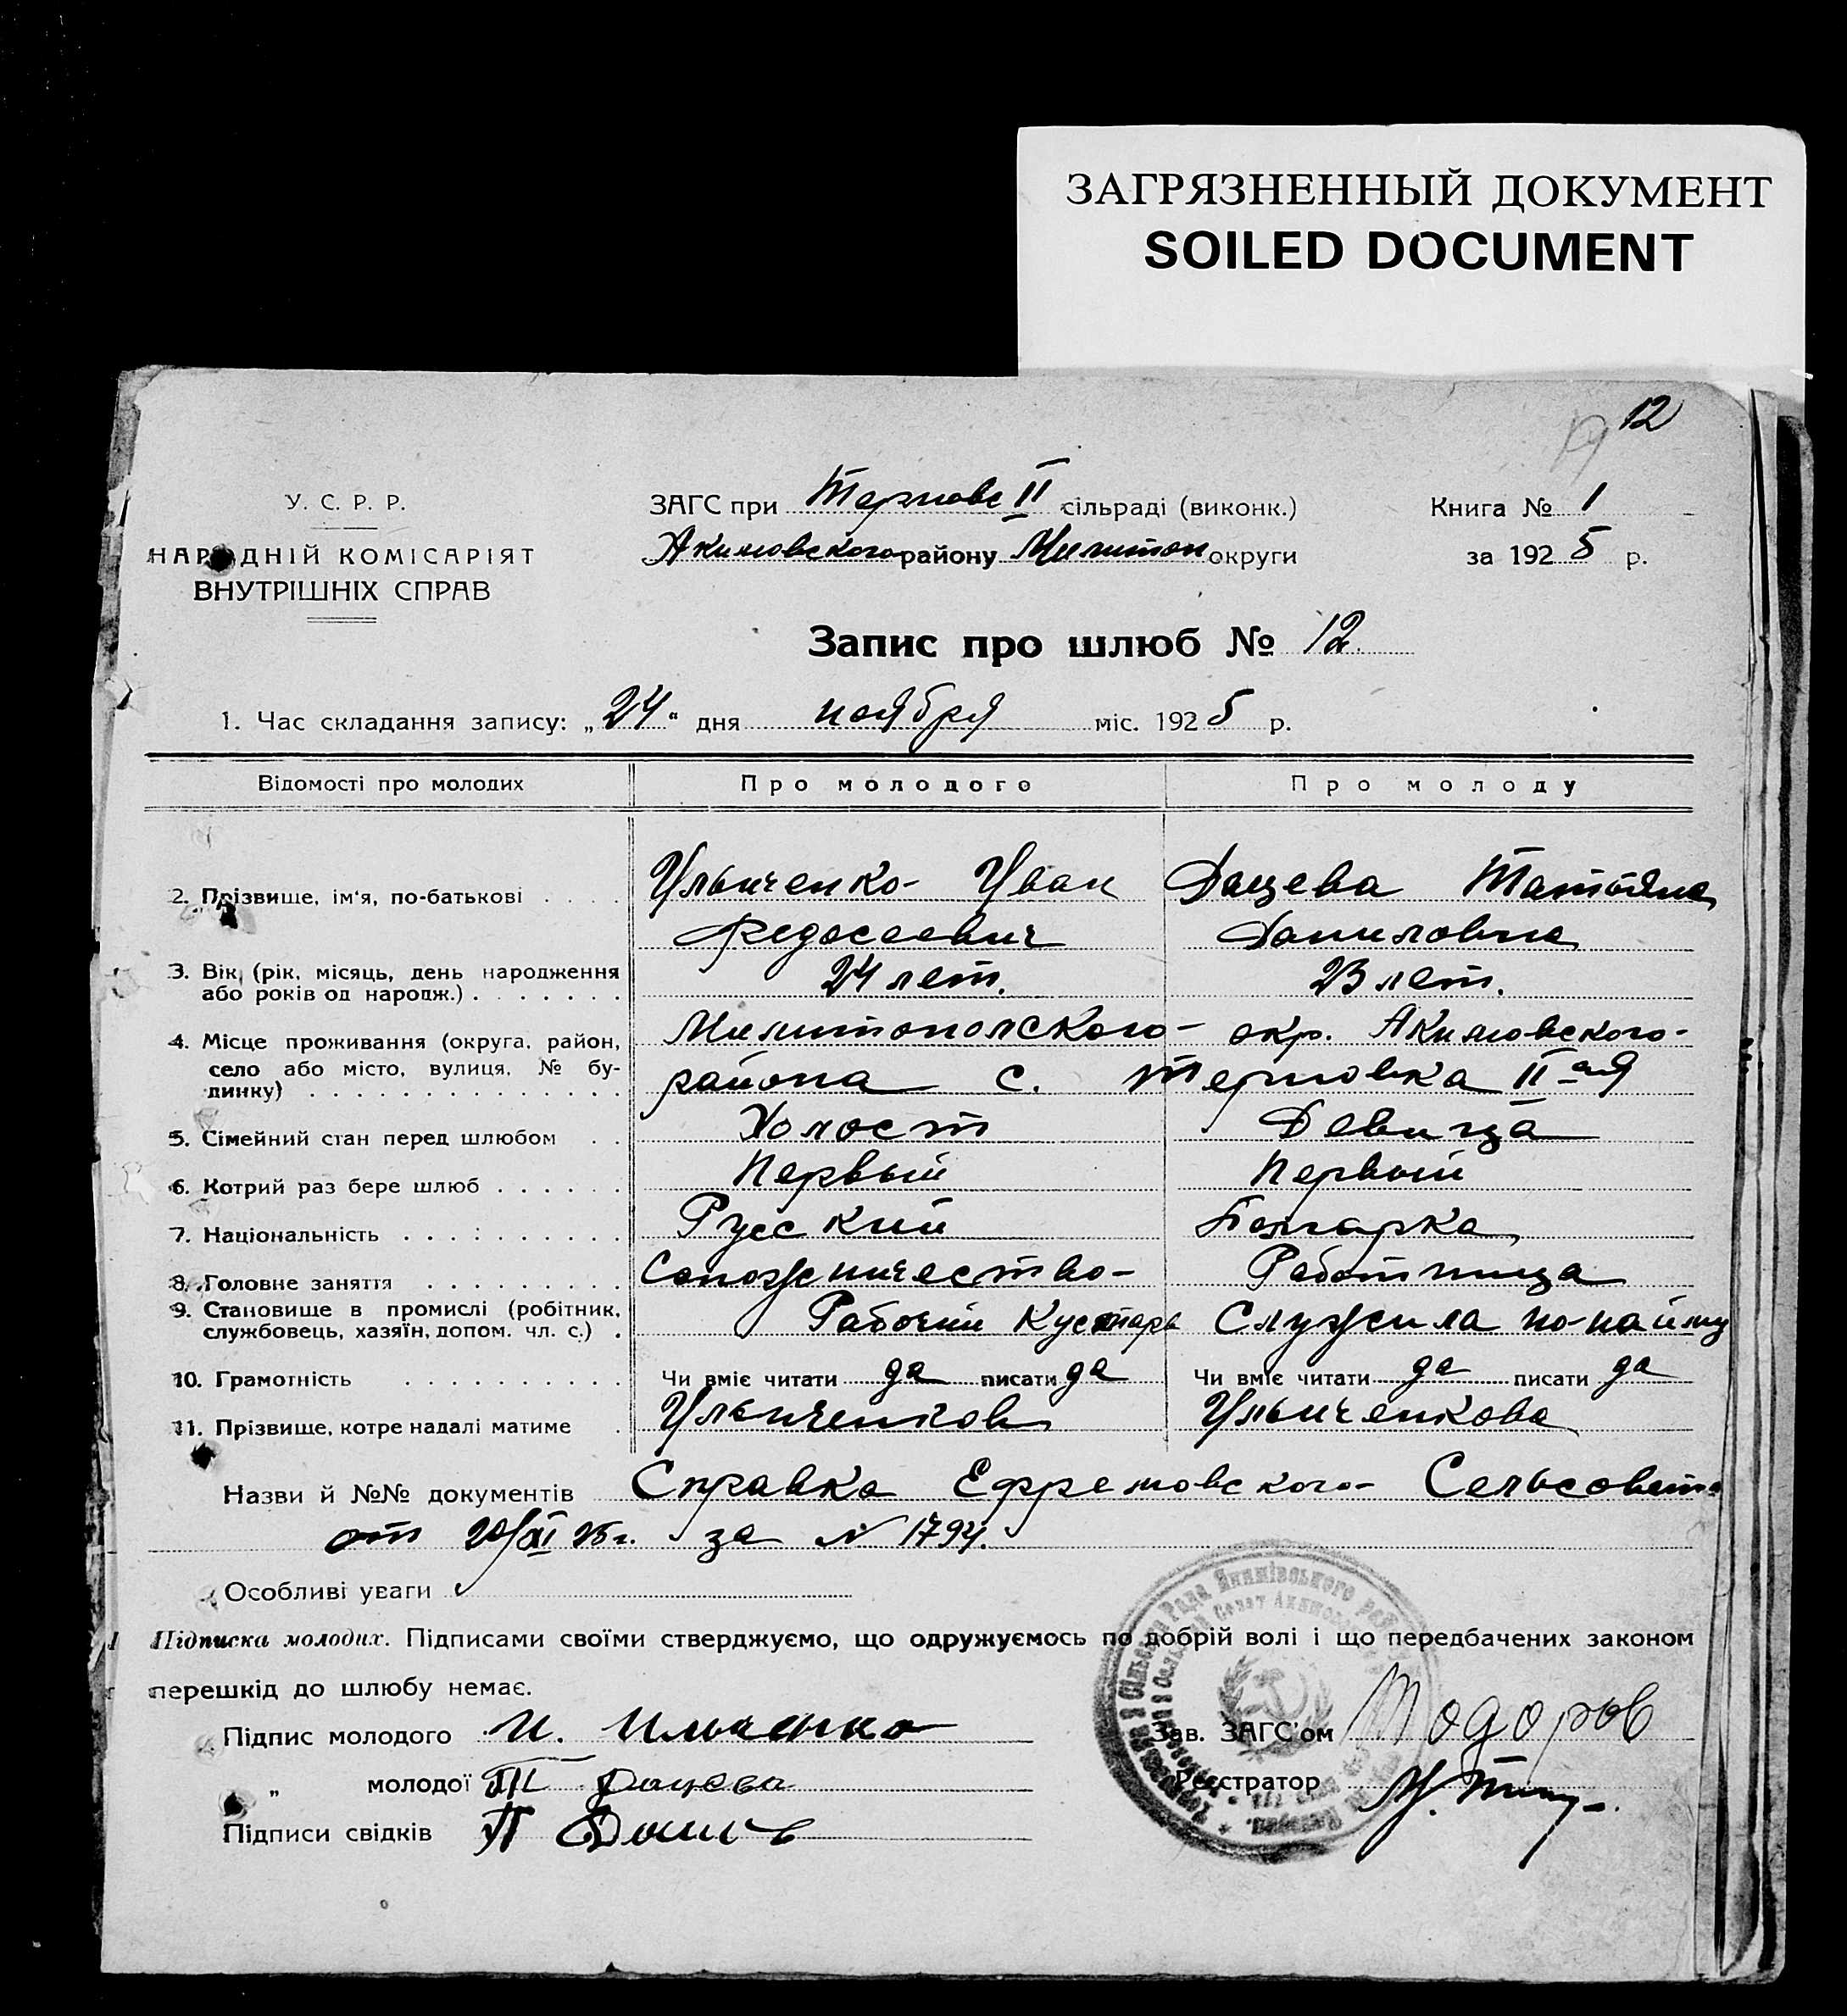 ЗАГРЯЗНЕННЫЙ ДОКУМЕНТ
SOILED DOCUMENT
12
У. С. Р. Р.
НАРОДНІЙ КОМІСАРІЯТ
ВНУТРІШНІХ СПРАВ
ЗАГС при Терновс II сільраді (виконк.)
Акимовского району Милитоп округи
Книга № 1
за 1925 р.
Запис про шлюб № 12
1. Час складання запису: „24“ дня ноября міс. 1925 р.
Відомості про молодих Про молодого Про молоду
2. Прізвище, ім‘я, по-батькові . . . . Ильиченко Иван Дацева Татьяна
Федосеевич Даниловна
3. Вік (рік, місяць, день народження або років од народж.) . . . . . . . 24 лет. 23 лет.
4. Місце проживання (округа, район, село або місто, вулиця, № будинку) . . . . . . . . . . . . . . Милитополского окр. Акимовского
района с. Терновка II-ая
5. Сімейний стан перед шлюбом . . Холост Девица
6. Котрий раз бере шлюб . . . . . . Первый Первый
7. Національність . . . . . . . . . . Русский Болгарка
8. Головне заняття . . . . . . . . . Сапожничество Работница
9. Становище в промислі (робітник, службовець, хазяїн, допом. чл. с.) . Рабочий Кустарь Служила по-найму
10. Грамотність . . . . . . . . . . Чи вміє читати да писати да Чи вміє читати да писати да
11. Прізвище, котре надалі матиме . Ильиченков Ильиченкова
Назви й №№ документів Справка Ефремовского Сельсовета
от 20/XI 25 г. за № 1794.
Особливі уваги
Підписка молодих. Підписами своїми стверджуємо, що одружуємось по добрій волі і що передбачених законом
перешкід до шлюбу немає.
Підпис молодого И. Ильченко
„ молодої Т Дацева
Підписи свідків
Зав. ЗАГС'ом Тодоров
Реєстратор